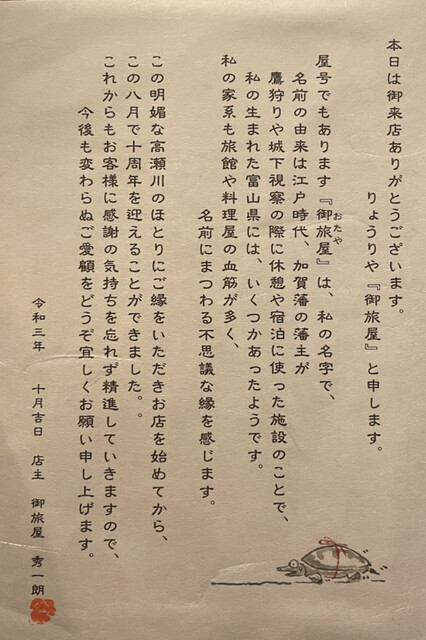 本日は御来店ありがとうございます。
りょうりや『御旅屋』と申します。
屋号でもあります『御旅屋』は、私の名字で、
おたや
名前の由来は江戸時代、加賀藩の藩主が
鷹狩りや城下視察の際に休憩や宿泊に使った施設のことで、
私の生まれた富山県には、いくつかあったようです。
私の家系も旅館や料理屋の血筋が多く、
名前にまつわる不思議な縁を感じます。
この明媚な高瀬川のほとりにご縁をいただきお店を始めてから、
この八月で十周年を迎えることができました。。
これからもお客様に感謝の気持ちを忘れず精進していきますので、
今後も変わらぬご愛顧をどうぞ宜しくお願い申し上げます。
令和三年 十月吉日 店主 御旅屋 秀一朗